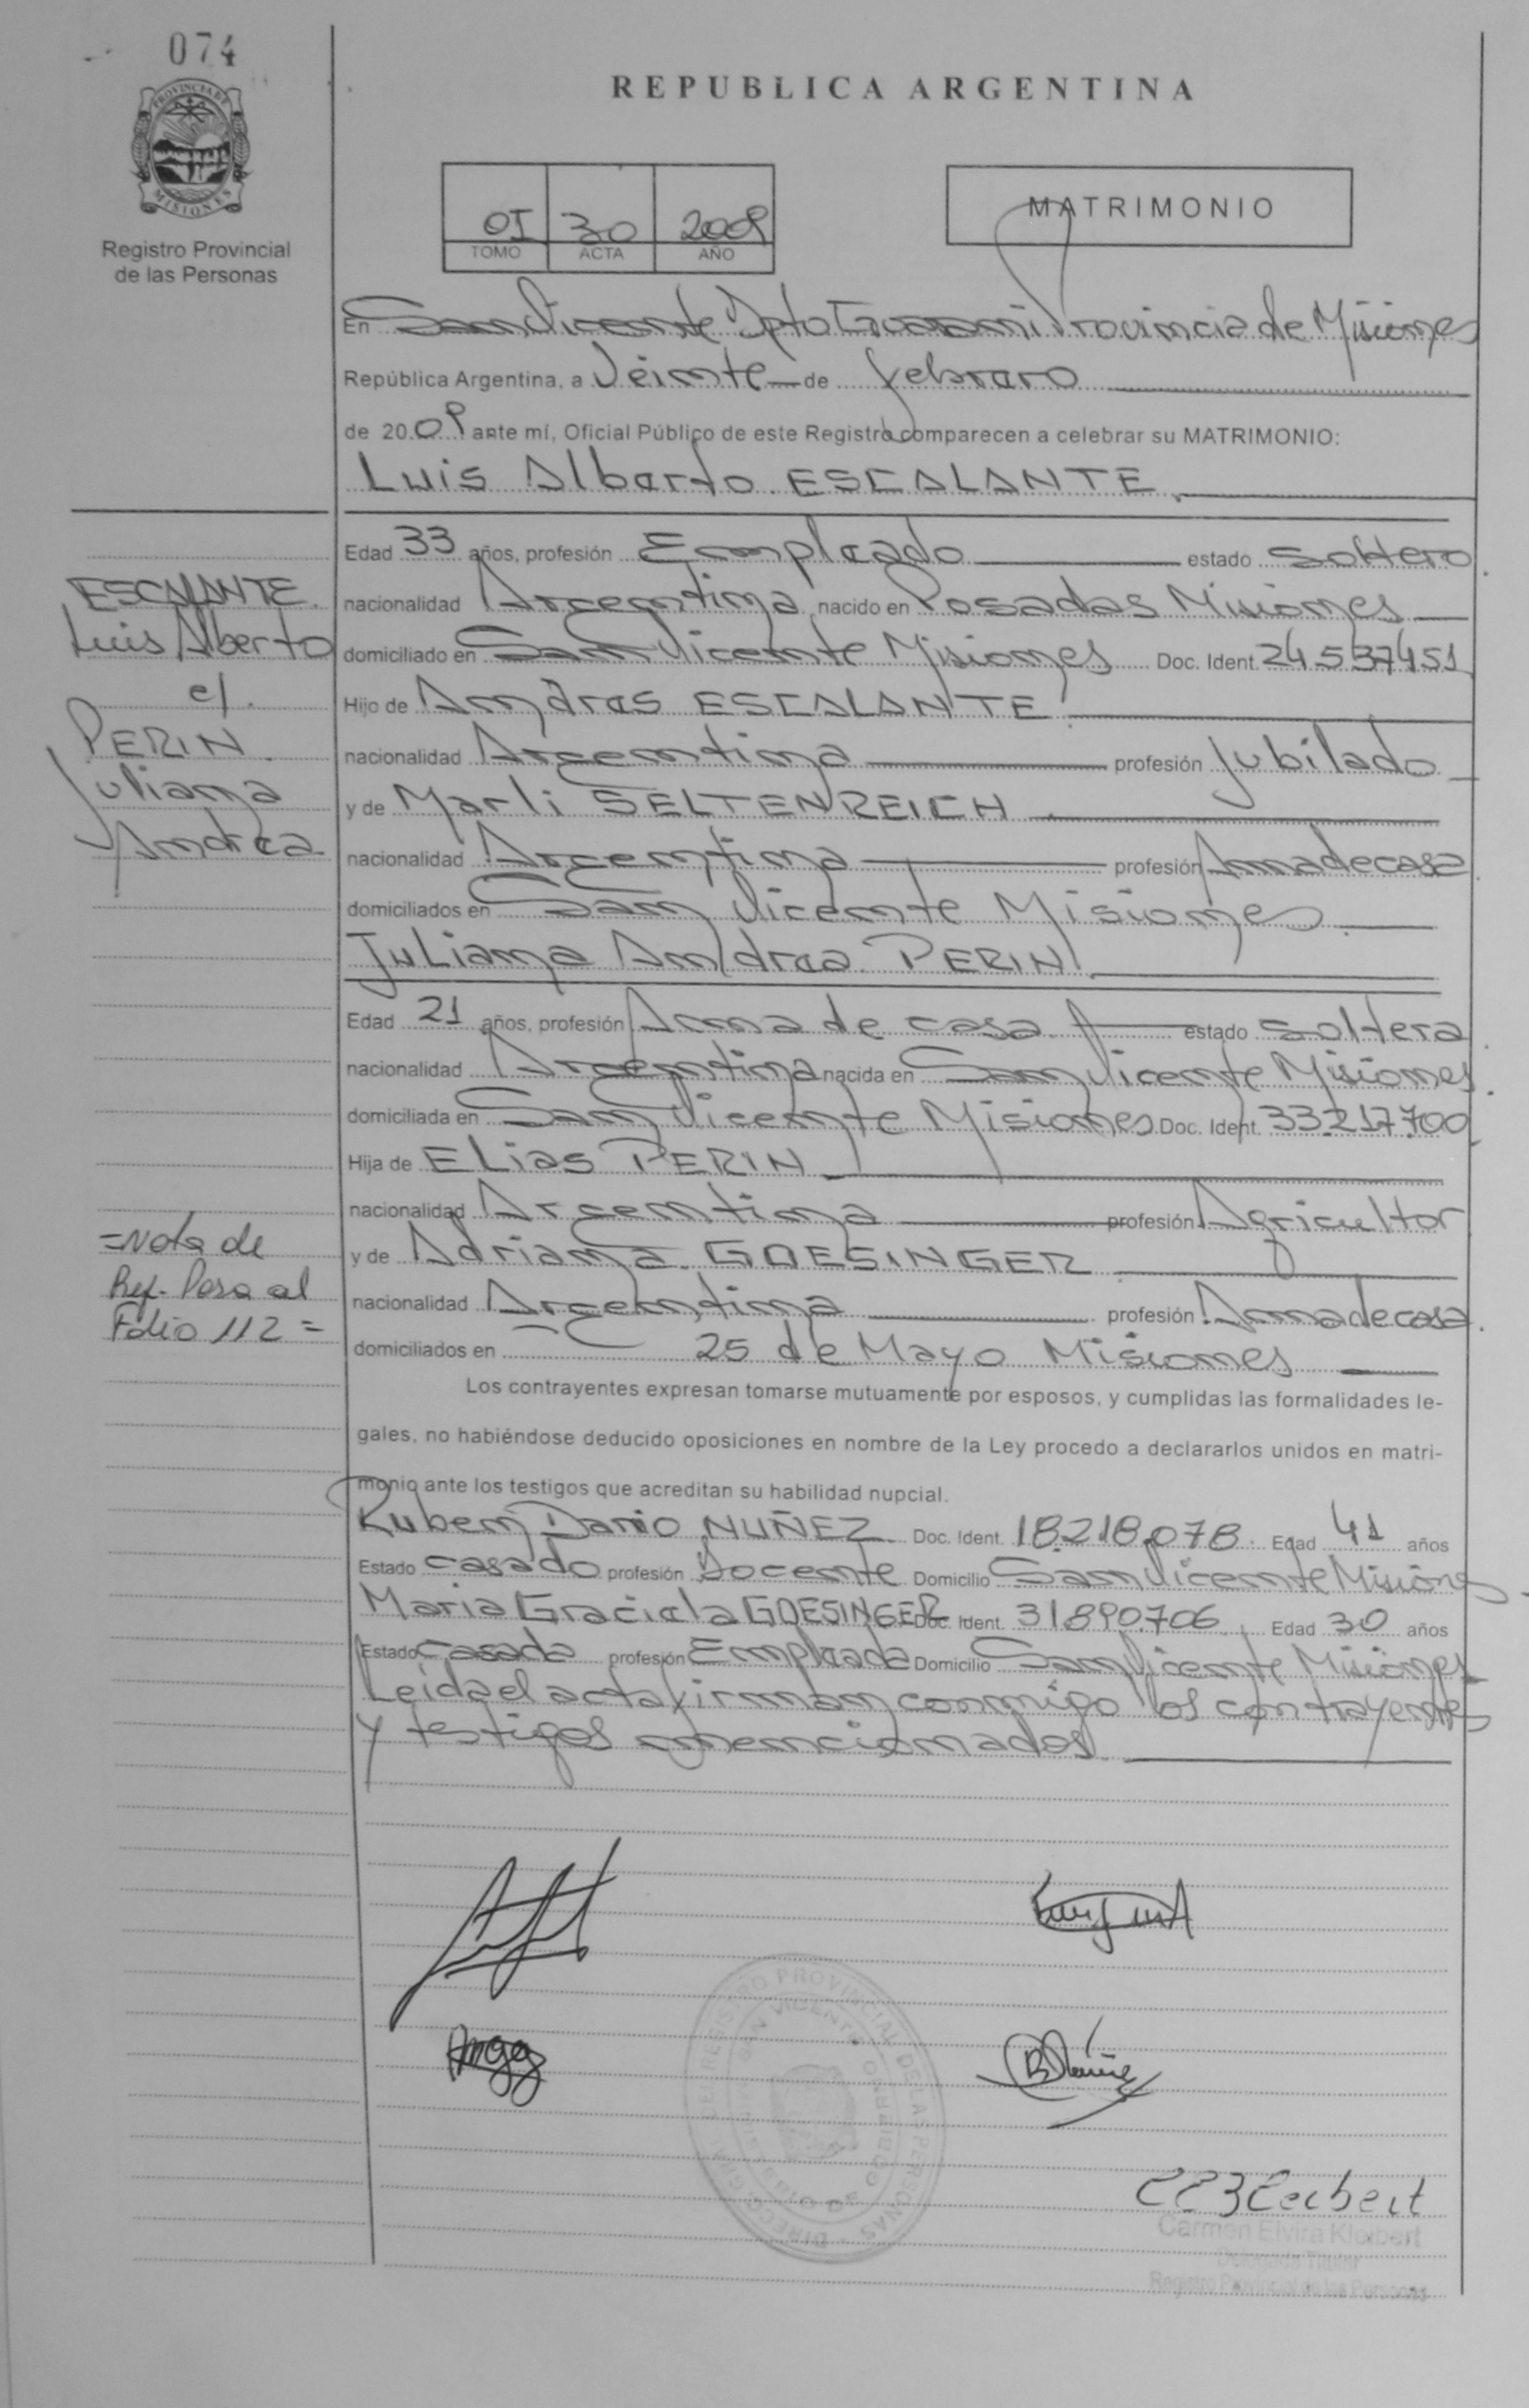 074
PROVINCIA DE
MISIONES
Registro Provincial
de las Personas
REPUBLICA ARGENTINA
OI 30 2009
TOMO ACTA AÑO
MATRIMONIO
En San Vicente Dpto Guarani Provincia de Misiones
República Argentina, a Veinte de febrero
de 2009 ante mí, Oficial Público de este Registro comparecen a celebrar su MATRIMONIO:
Luis Alberto ESCALANTE
Edad 33 años, profesión Empleado estado soltero
nacionalidad Argentina nacido en Posadas Misiones
domiciliado en San Vicente Misiones Doc. Ident. 24537451
Hijo de Andres ESCALANTE
nacionalidad Argentina profesión Jubilado
y de Marli SELTENREICH
nacionalidad Argentina profesión Ama de casa
domiciliados en San Vicente Misiones
Juliana Andrea PERIN
Edad 21 años, profesión Ama de casa estado soltera
nacionalidad Argentina nacida en San Vicente Misiones
domiciliada en San Vicente Misiones Doc. Ident. 33.217.700
Hija de Elias PERIN
nacionalidad Argentina profesión Agricultor
y de Adriana GOESINGER
nacionalidad Argentina profesión Ama de casa
domiciliados en 25 de Mayo Misiones
Los contrayentes expresan tomarse mutuamente por esposos, y cumplidas las formalidades le-
gales, no habiéndose deducido oposiciones en nombre de la Ley procedo a declararlos unidos en matri-
monio ante los testigos que acreditan su habilidad nupcial.
Ruben Dario NUÑEZ Doc. Ident. 18.218.078 Edad 41 años
Estado casado profesión Docente Domicilio San Vicente Misiones
Maria Graciela GOESINGER Doc. Ident. 31.890.706 Edad 30 años
Estado casada profesión Empleada Domicilio San Vicente Misiones
Leida el acta firman conmigo los contrayentes
y testigos mencionados
ESCALANTE
Luis Alberto
c/.
PERIN
Juliana
Andrea
=Nota de
Ref. Pasa al
Folio 112=
DIREC. GRAL. DEL REGISTRO PROVINCIAL DE LAS PERSONAS
SAN VICENTE
MINISTERIO DE GOBIERNO
Carmen Elvira Kleibert
Delegada Titular
Registro Provincial de las Personas